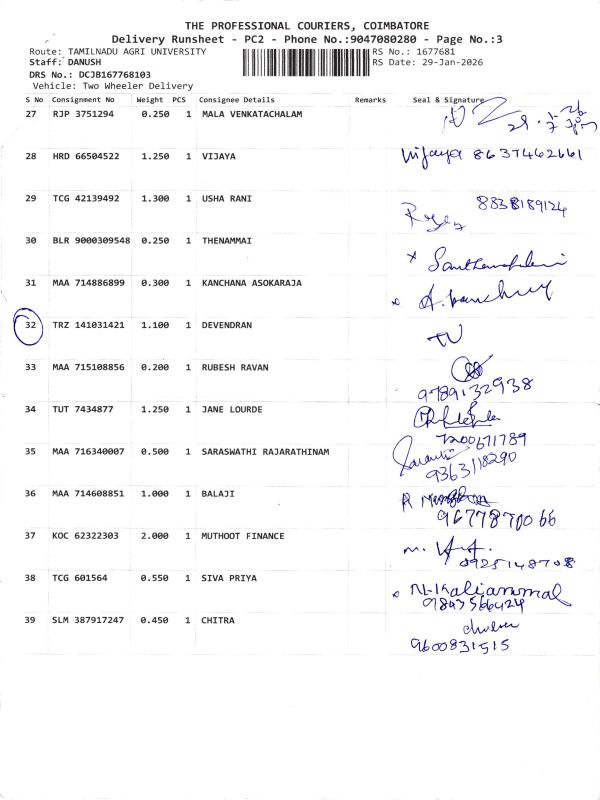 THE PROFESSIONAL COURIERS, COIMBATORE
Delivery Runsheet - PC2 - Phone No.:9047080280 - Page No.:3
Route: TAMILNADU AGRI UNIVERSITY RS No.: 1677681
Staff: DANUSH RS Date: 29-Jan-2026
DRS No.: DCJB167768103
Vehicle: Two Wheeler Delivery
S No Consignment No Weight PCS Consignee Details Remarks Seal & Signature
27 RJP 3751294 0.250 1 MALA VENKATACHALAM
28 HRD 66504522 1.250 1 VIJAYA Vijaya 8637462661
29 TCG 42139492 1.300 1 USHA RANI 8838189124
30 BLR 9000309548 0.250 1 THENNAMMAI
31 MAA 714886899 0.300 1 KANCHANA ASOKARAJA
32 TRZ 141031421 1.100 1 DEVENDRAN
33 MAA 715108856 0.200 1 RUBESH RAVAN
9789132938
34 TUT 7434877 1.250 1 JANE LOURDE
7200671789
35 MAA 716340007 0.500 1 SARASWATHI RAJARATHINAM
9363118290
36 MAA 714608851 1.000 1 BALAJI
9677870066
37 KOC 62322303 2.000 1 MUTHOOT FINANCE
38 TCG 601564 0.550 1 SIVA PRIYA N. Kaliammal
9843566424
39 SLM 387917247 0.450 1 CHITRA
9600831515